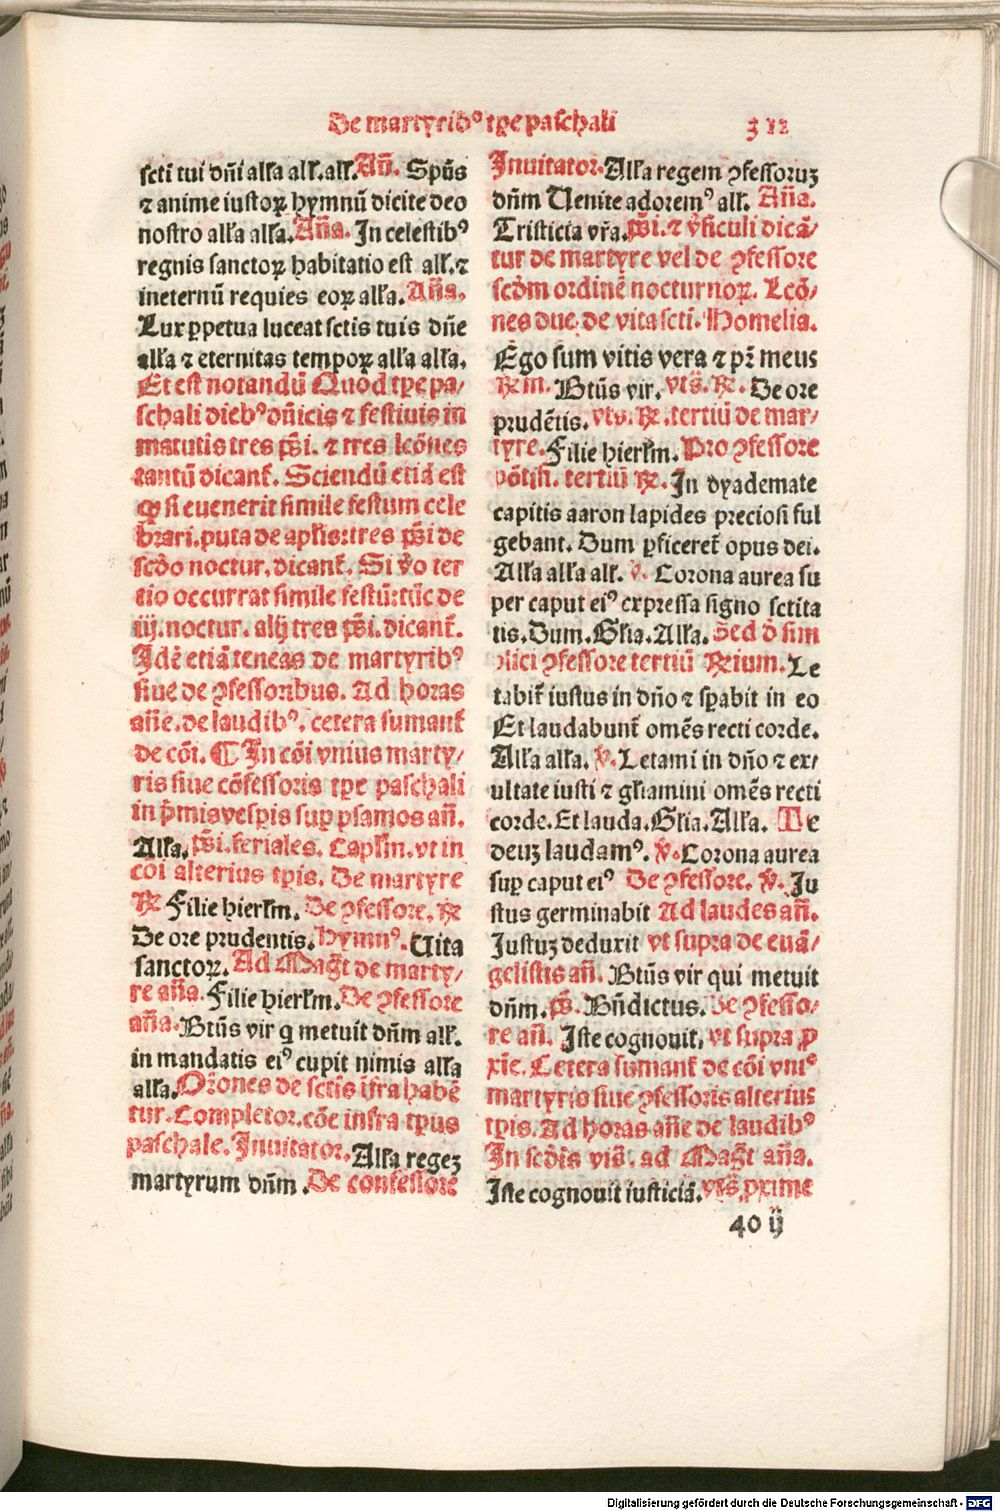 De martyribꝰ tp̄e paschali 312
sctī tui dn̄i alła ałł. ałł. An̄. Spūs
⁊ anime iustoꝝ hymnū dicite deo
nostro alła alła. An̄a. In celestibꝰ
regnis sanctoꝝ habitatio est ałł. ⁊
ineternū requies eoꝝ alła. An̄a.
Lux ꝑpetua luceat sctis tuis dn̄e
alła ⁊ eternitas tempoꝝ alła alła.
Et est notandū Quod tp̄e pa⸗
schali diebꝰ dn̄icis ⁊ festiuis in
matutis tres ps̄i. ⁊ tres lcōnes
tantū dicant᷑. Sciendū etiā est
ꝙ si euenerit simile festum cele
brari. puta de apłis: tres ps̄i de
scd̄o noctur. dicant᷑. Si v̄o ter
tio occurrat simile festū: tūc de
iij. noctur. alij tres ps̄i. dicant᷑.
Idē etiā teneas de martyribꝰ
siue de ꝯfessoribus. Ad horas
an̄e. de laudibꝰ. cetera sumant᷑
de cōi. ¶ In cōi vnius marty⸗
ris siue cōfessoris tp̄e paschali
in p̄mis vesp̄is suꝑ psalmos an̄.
Alła. ps̄i. feriales. Caplm̄. vt in
cōi alterius tp̄is. De martyre
℟ Filie hierłm. De ꝯfessore. ℟
De ore prudentis. Hymnꝰ. Uita
sanctoꝝ. Ad Maḡt de marty⸗
re an̄a. Filie hierłm. De ꝯfessore
an̄a. Btūs vir q metuit dn̄m ałł.
in mandatis eiꝰ cupit nimis alła
alła. Or̄ones de sctīs īfra habē
tur. Completor. cōe infra tp̄us
paschale. Inuitator. Alła regeꝫ
martyrum dn̄m. De confessore
Inuitator. Alła regem ꝯfessoruꝫ
dn̄m Uenite adoremꝰ ałł. An̄a.
Tristicia vr̄a. ps̄i. ⁊ v̄siculi dicā⸗
tur de martyre vel de ꝯfessore
scd̄m ordinē nocturnoꝝ. Lcō⸗
nes due. de vita sctī. Homelia.
Ego sum vitis vera ⁊ pr̄ meus
℟ m. Btūs vir. vts̄. ℟. De ore
prudētis. vts̄. ℟. tertiū de mar⸗
tyre. Filie hierłm. Pro ꝯfessore
pōtifi. tertiū ℟. In dyademate
capitis aaron lapides preciosi ful
gebant. Dum ꝑficeret᷑ opus dei.
Alła alła ałł. ℣. Corona aurea su
per caput eiꝰ expressa signo sctīta
tis. Dum. Głia. Alła. Sed d̄ sim
plici ꝯfessore tertiū ℟rium. Le
tabit᷑ iustus in dn̄o ⁊ sp̄abit in eo
Et laudabunt᷑ om̄es recti corde.
Alła alła. ℣. Letami in dn̄o ⁊ ex⸗
ultate iusti ⁊ głiamini om̄es recti
corde. Et lauda. Głia. Alła. Te
deuꝫ laudamꝰ. ℣. Corona aurea
suꝑ caput eiꝰ De ꝯfessore. ℣. Ju
stus germinabit Ad laudes an̄.
Justuꝫ deduxit vt supra de euā⸗
gelistis an̄. Btūs vir qui metuit
dn̄m. ps̄. Bn̄dictus. De ꝯfesso⸗
re an̄. Iste cognouit, vt supra ꝓ
xīe. Cetera sumant᷑ de cōi vniꝰ
martyris siue ꝯfessoris alterius
tp̄is. Ad horas an̄e de laudibꝰ
In scd̄is vis̄. ad Maḡt an̄a.
Iste cognouit iusticiā. vts̄. pxime
40 ij
Digitalisierung gefördert durch die Deutsche Forschungsgemeinschaft - DFG